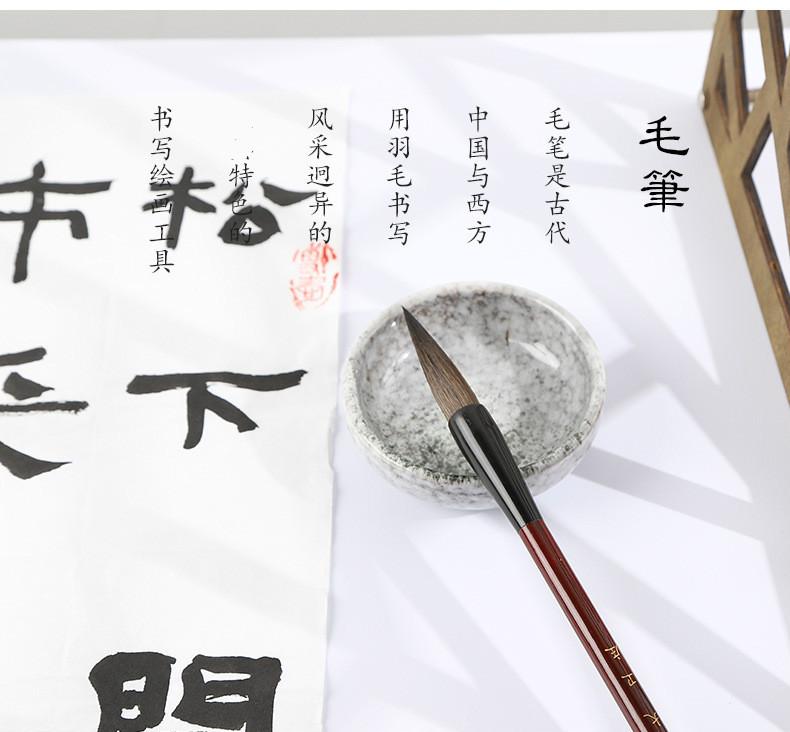 毛筆
毛笔是古代
中国与西方
用羽毛书写
风采迥异的
特色的
书写绘画工具
松下問